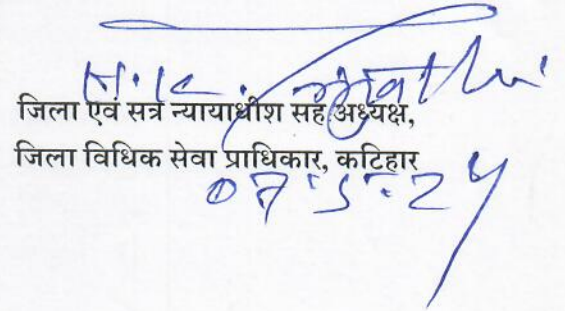 H.K.
जिला एवं सत्र न्यायाधीश सह अध्यक्ष,
जिला विधिक सेवा प्राधिकार, कटिहार
07.5.24